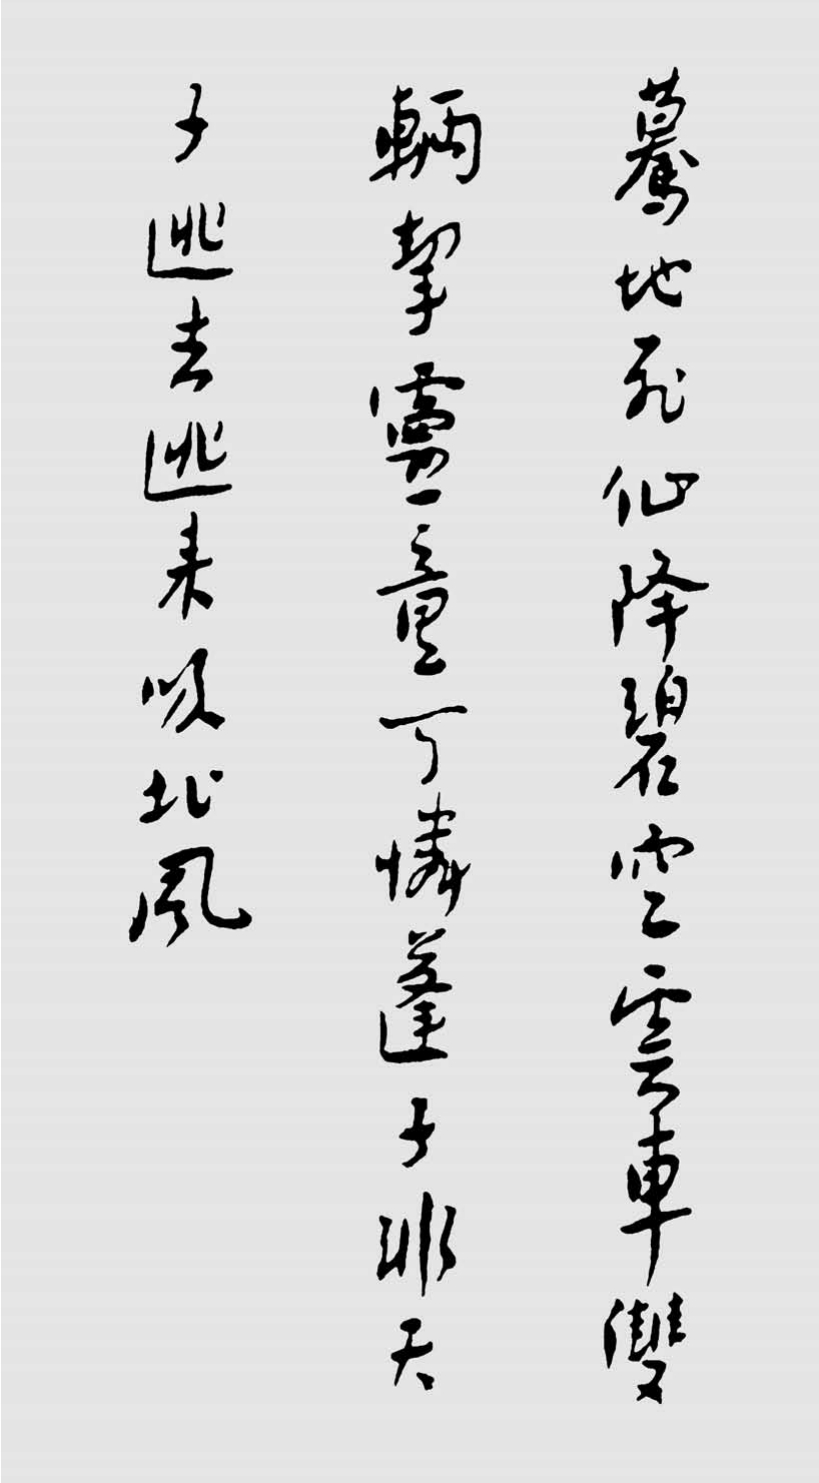 驀地飛仙降碧空雲車雙
輛挈靈童可憐蓬子非天
子逃去逃來吸北風